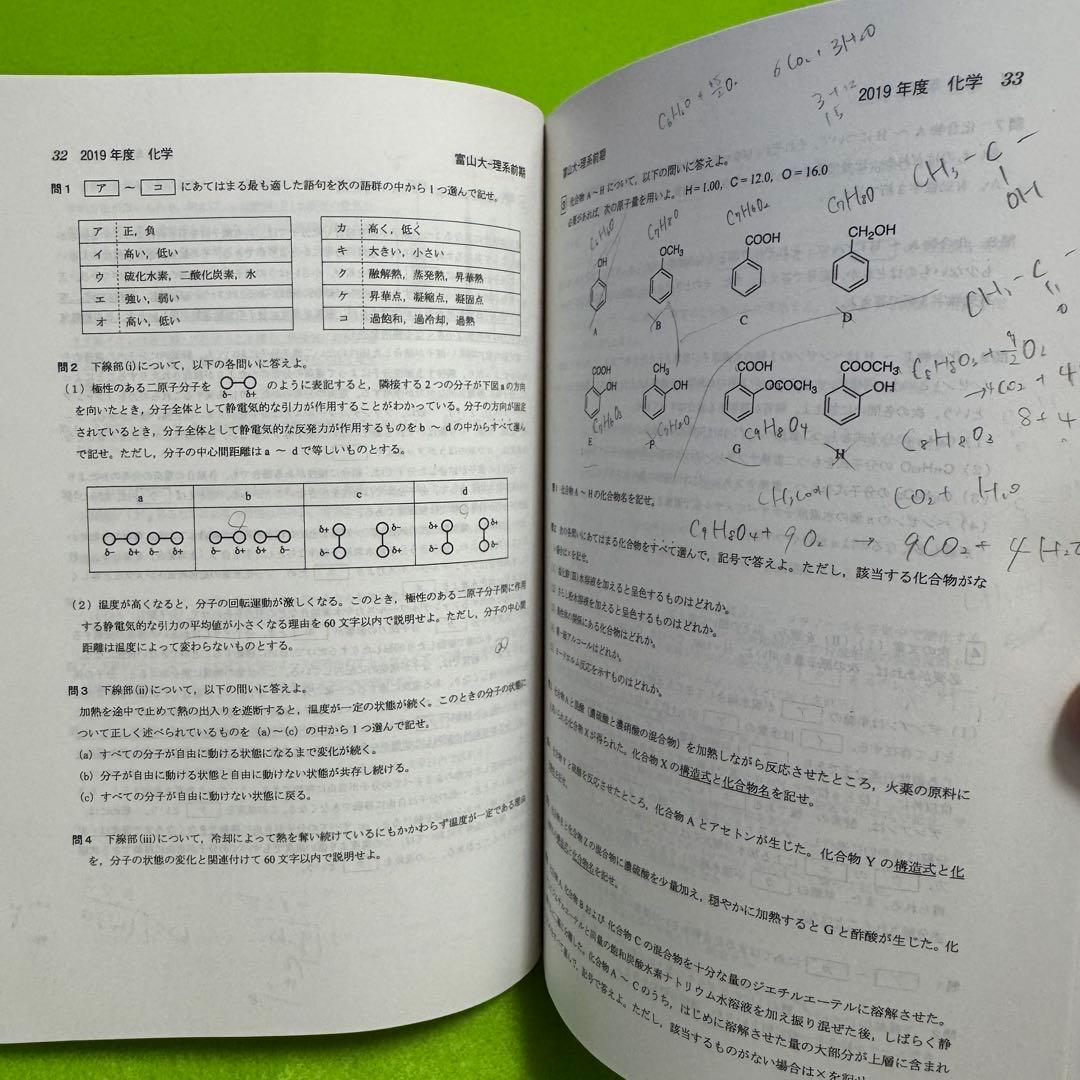 32 2019年度 化学
富山大-理系前期
問1 ア ～ コ にあてはまる最も適した語句を次の語群の中から1つ選んで記せ。
ア 正, 負
イ 高い, 低い
ウ 硫化水素, 二酸化炭素, 水
エ 強い, 弱い
オ 高い, 低い
カ 高く, 低く
キ 大きい, 小さい
ク 融解熱, 蒸発熱, 昇華熱
ケ 昇華点, 凝縮点, 凝固点
コ 過飽和, 過冷却, 過熱
問2 下線部(i)について, 以下の各問いに答えよ。
(1) 極性のある二原子分子を δ− δ+ のように表記すると, 隣接する2つの分子が下図aの方向
を向いたとき, 分子全体として静電気的な引力が作用することがわかっている。分子の方向が固定
されているとき, 分子全体として静電気的な反発力が作用するものをb ～ dの中からすべて選ん
で記せ。ただし, 分子の中心間距離はa ～ dで等しいものとする。
a b c d
δ− δ+ δ− δ+
δ− δ+ δ− δ+
δ+ δ−
δ− δ+
δ+ δ+
δ− δ−
(2) 温度が高くなると, 分子の回転運動が激しくなる。このとき, 極性のある二原子分子間に作用
する静電気的な引力の平均値が小さくなる理由を60文字以内で説明せよ。ただし, 分子の中心間
距離は温度によって変わらないものとする。
問3 下線部(ii)について, 以下の問いに答えよ。
加熱を途中で止めて熱の出入りを遮断すると, 温度が一定の状態が続く。このときの分子の状態に
ついて正しく述べられているものを (a)～(c) の中から1つ選んで記せ。
(a) すべての分子が自由に動ける状態になるまで変化が続く。
(b) 分子が自由に動ける状態と自由に動けない状態が共存し続ける。
(c) すべての分子が自由に動けない状態に戻る。
問4 下線部(iii)について, 冷却によって熱を奪い続けているにもかかわらず温度が一定である理由
を, 分子の状態の変化と関連付けて60文字以内で説明せよ。
C6H6O + 15/2 O2 6CO2 + 3H2O
3+12
15
2019年度 化学 33
富山大-理系前期
3 化合物A～Hについて, 以下の問いに答えよ。
必要があれば, 次の原子量を用いよ。H=1.00, C=12.0, O=16.0
C6H6O C7H8O C7H6O2 C7H8O
CH3-C-
OH
OH OCH3 COOH CH2OH
A B C D
CH3-C-
O
COOH OH CH3 OH COOH OCOCH3 COOCH3 OH
C7H6O3 C7H8O C9H8O4
E F G H
C8H8O3 + 9/2 O2
→4CO2 + 4
8+4
C8H8O3
CH3COOH CO2 + H2O
問1 化合物A～Hの化合物名を記せ。
C9H8O4 + 9O2 → 9CO2 + 4H2O
問2 次の各問いにあてはまる化合物をすべて選んで, 記号で答えよ。ただし, 該当する化合物がな
い場合は×を記せ。
塩化鉄(III)水溶液を加えると呈色するものはどれか。
さらし粉水溶液を加えると呈色するものはどれか。
異性体の関係にある化合物はどれか。
第一級アルコールはどれか。
ヨードホルム反応を示すものはどれか。
化合物Aと混酸（濃硫酸と濃硝酸の混合物）を加熱しながら反応させたところ, 火薬の原料に
用いられる化合物Xが得られた。化合物Xの構造式と化合物名を記せ。
化合物Yと硫酸を反応させたところ, 化合物Aとアセトンが生じた。化合物Yの構造式と化
化合物Eと化合物Zの混合物に濃硫酸を少量加え, 穏やかに加熱するとGと酢酸が生じた。化
構造式と化合物名を記せ。
化合物A, 化合物Bおよび化合物Cの混合物を十分な量のジエチルエーテルに溶解させた。
ジエチルエーテルと同量の飽和炭酸水素ナトリウム水溶液を加え振り混ぜた後, しばらく静
置した。化合物A～Cのうち, はじめに溶解させた量の大部分が上層に含まれ
選んで, 記号で答えよ。ただし, 該当するものがない場合は×を記せ